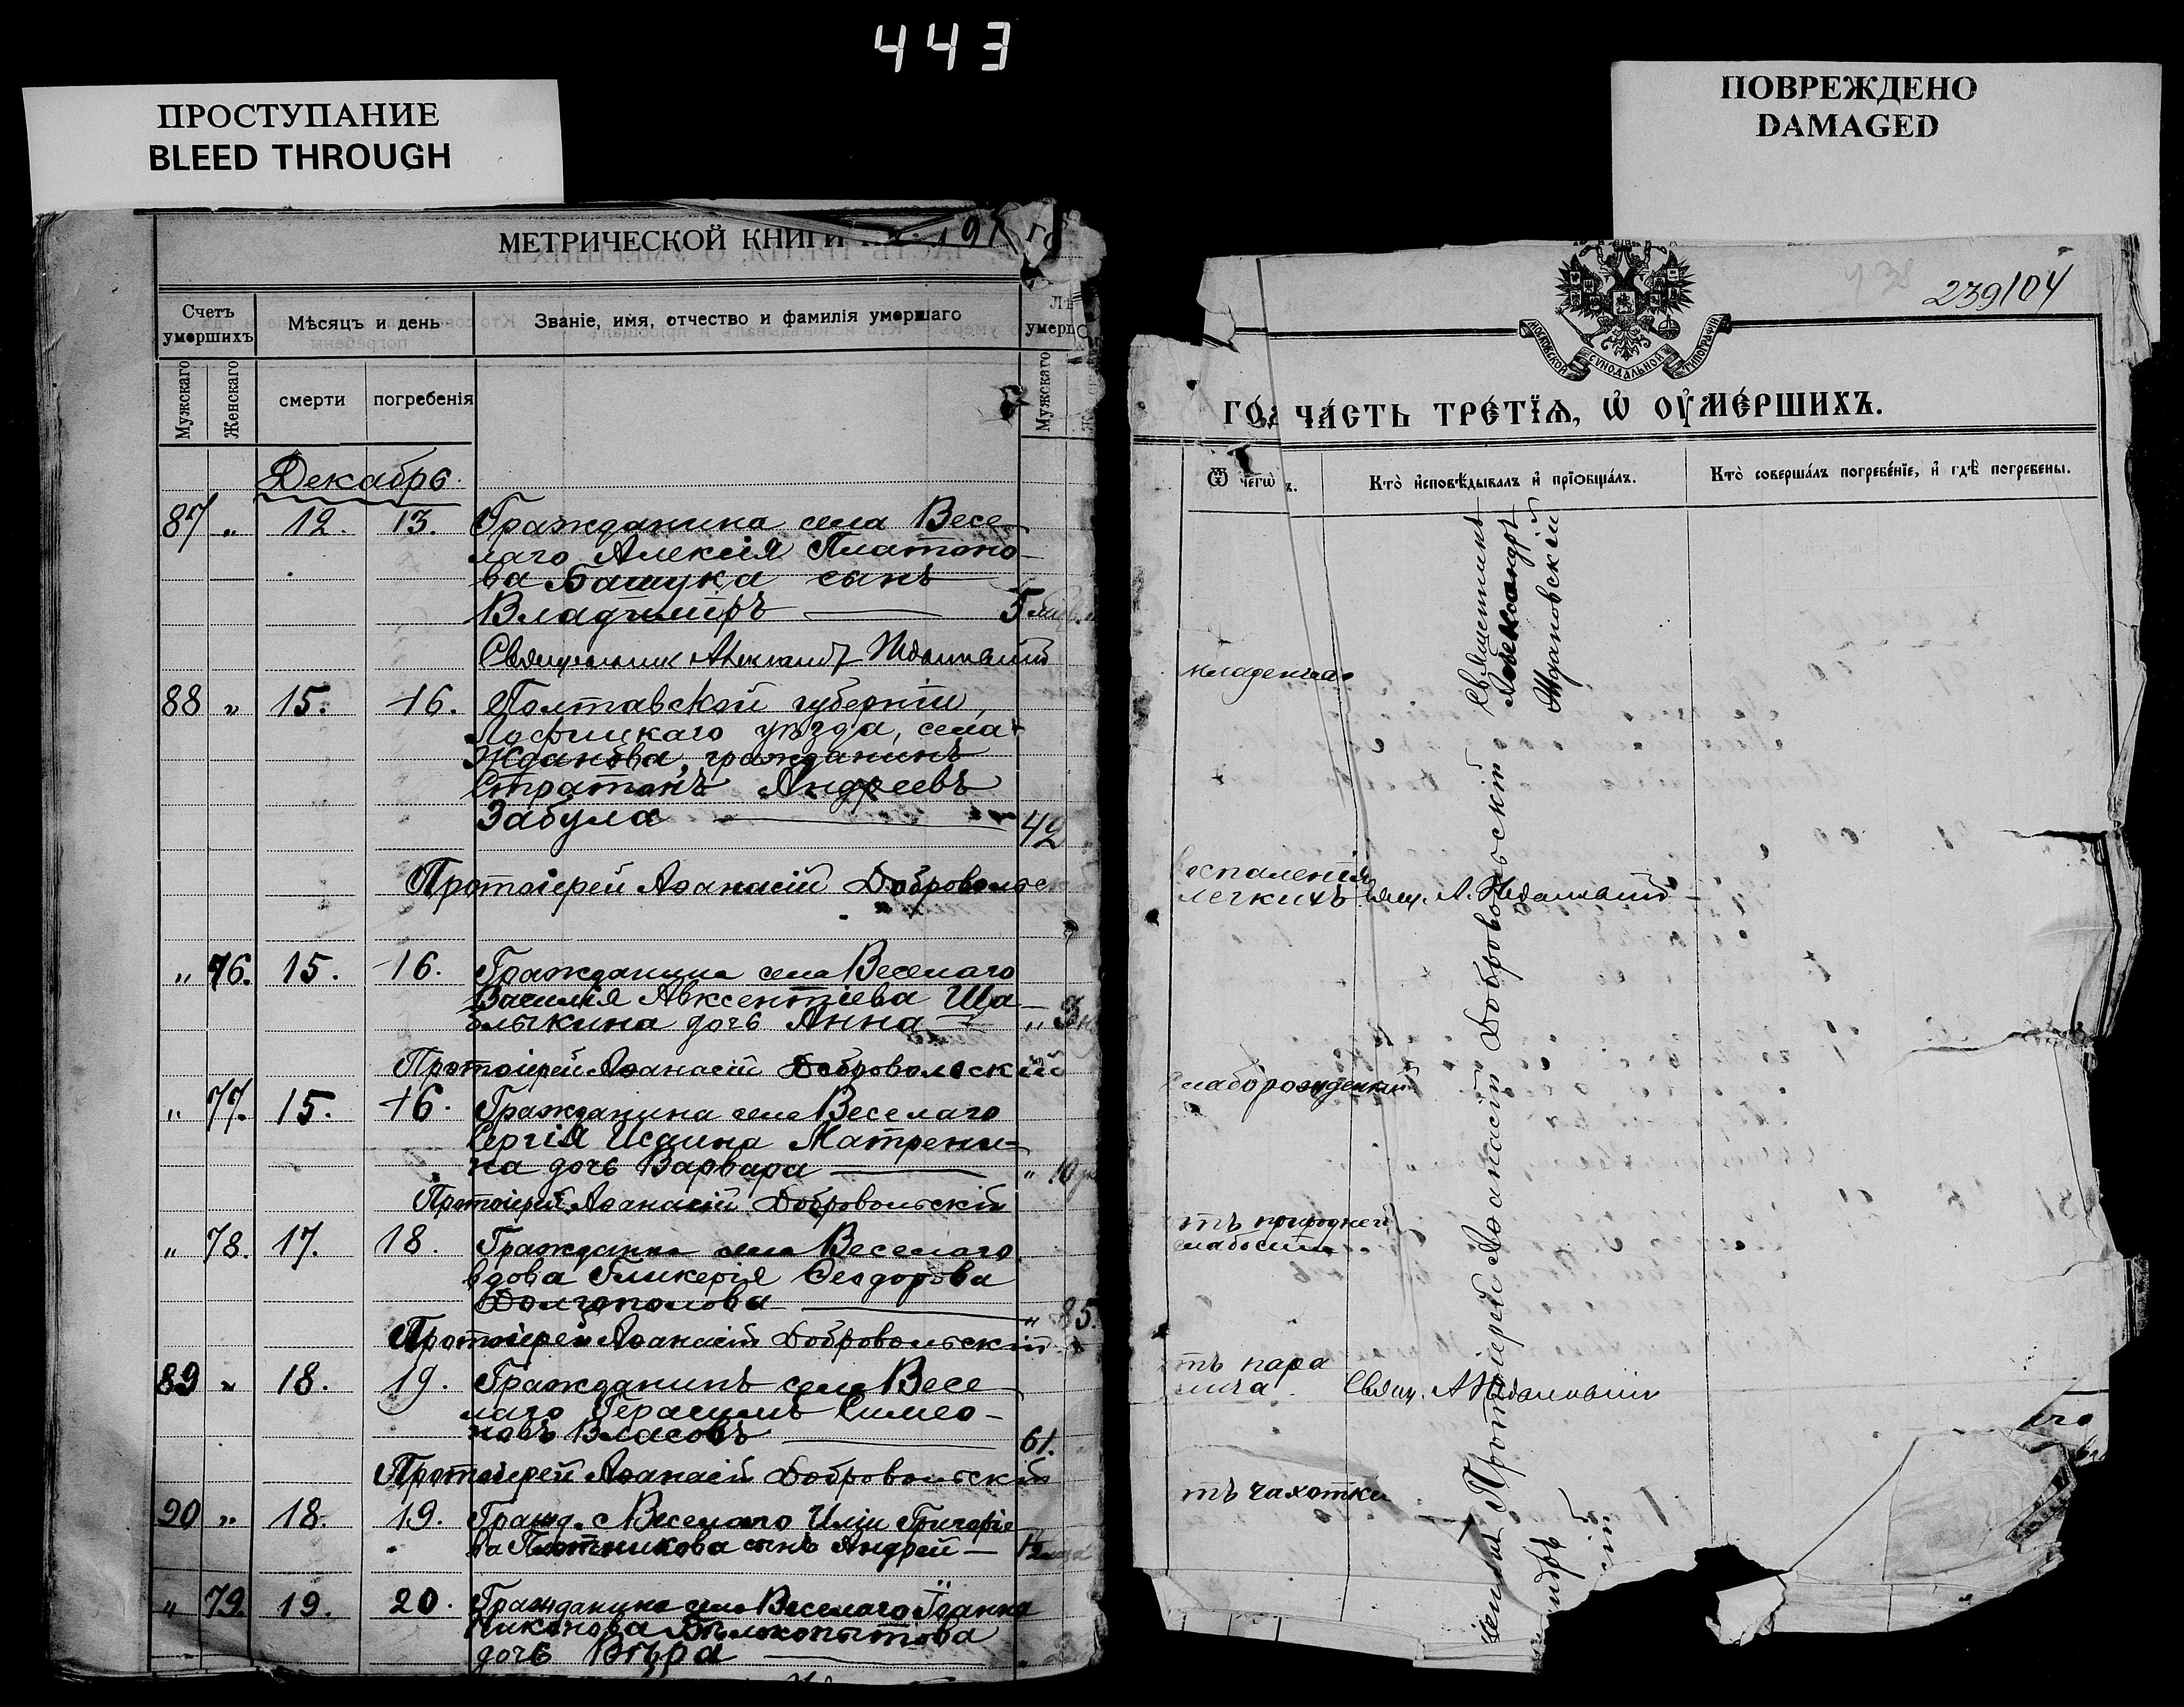 443
ПРОСТУПАНИЕ
BLEED THROUGH
ПОВРЕЖДЕНО
DAMAGED
МЕТРИЧЕСКОЙ КНИГИ
191
Счетъ умершихъ
Мѣсяцъ и день
Званіе, имя, отчество и фамилія умершаго
Мужскаго
Женскаго
смерти
погребенія
Мужскаго
Декабрь
87 " 12. 13. Гражданина села Весе-
лаго Алексія Платоно-
ва Башука сынъ
Владиміръ — 5
Священник Александр Ждановский
88 " 15. 16. Полтавской губерніи,
уѣзда, села
Жданова, гражданинъ
Стратонъ Андреевъ
Забула — 42
Протоіерей Аѳанасій Добровольск
" 76. 15. 16. Гражданина села Веселаго
Василія Авксентіева Ша-
блыкина дочь Анна — " 3
Протоіерей Аѳанасій Добровольскій
" 77. 15. 16. Гражданина села Веселаго
Сергія Исаина Матрени-
на дочь Варвара — " 10
Протоіерей Аѳанасій Добровольскій
" 78. 17. 18. Гражданка села Веселаго
вдова Гликерія Ѳеодорова
Долгополова — " 85.
Протоіерей Аѳанасій Добровольскій
89 " 18. 19. Гражданинъ села Весе-
лаго Герасимъ Симео-
новъ Власовъ — 61.
Протоіерей Аѳанасій Добровольскій
90 " 18. 19. Гражд. с. Веселаго Иліи Григоріе
ва Плотникова сынъ Андрей —
" 79. 19. 20. Гражданина села Веселаго Іоанна
Никонова Бѣлокопытова
дочь Вѣра —
239 104
МОСКОВСКОЙ СѴНОДАЛЬНОЙ ТИПОГРАФІИ
ЧА́СТЬ ТРЕ́ТЇѦ, Ѡ҆ ОУ҆МЕ́РШИХЪ.
Ѿ чегѡ̀
Кто̀ и҆сповѣ́дывалъ и҆ прїѡбща́лъ.
Кто̀ соверша́лъ погребе́нїе, и҆ гдѣ̀ погребены.
младенчес
Священникъ
Александръ
Ждановскій
воспаленія
легкихъ
Свящ. А. Ждановский
слаборожденный
тъ природней
слабости
тъ пара
лича
Свящ. А Ждановский
тъ чахотки
Протоіерей Аѳанасій Добровольскій